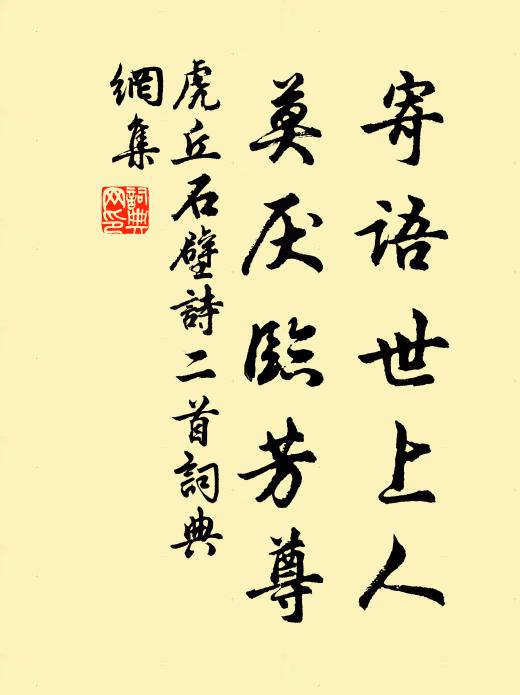 寄語世上人
莫厌臨芳尊
虎丘石壁詩二首詞典
網集
詞典網印